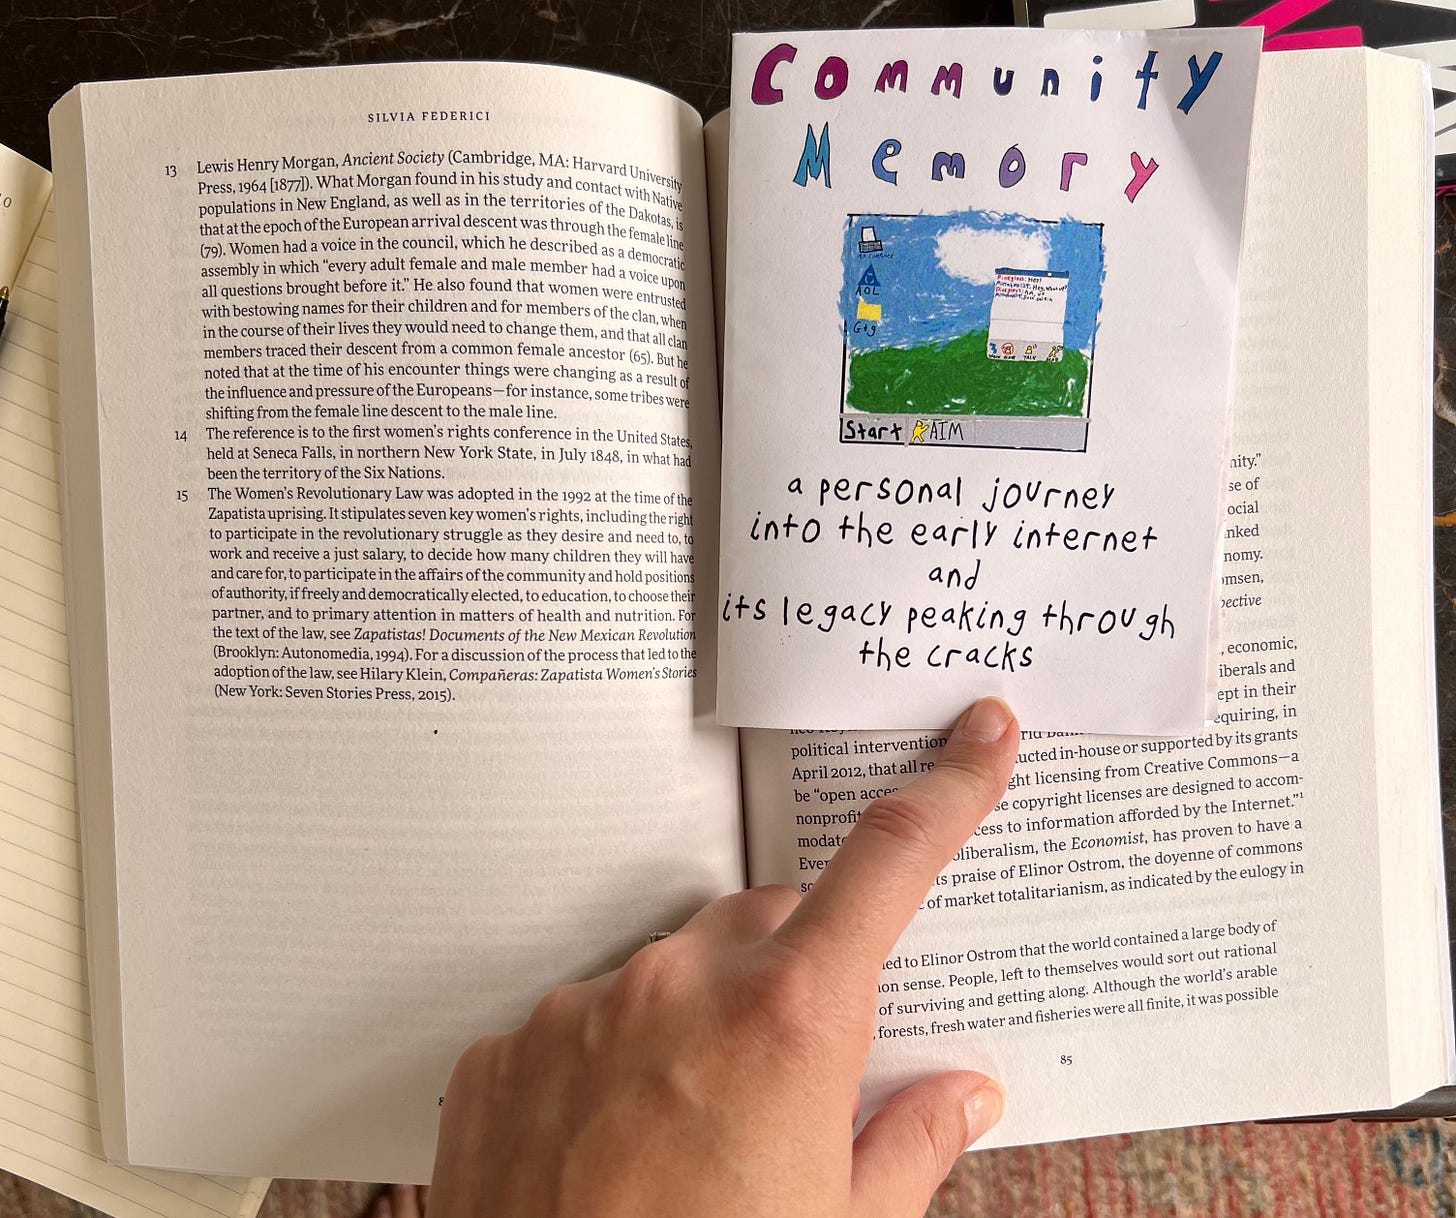 SILVIA FEDERICI
13 Lewis Henry Morgan, Ancient Society (Cambridge, MA: Harvard University
Press, 1964 [1877]). What Morgan found in his study and contact with Native
populations in New England, as well as in the territories of the Dakotas, is
that at the epoch of the European arrival descent was through the female line
(79). Women had a voice in the council, which he described as a democratic
assembly in which “every adult female and male member had a voice upon
all questions brought before it.” He also found that women were entrusted
with bestowing names for their children and for members of the clan, when
in the course of their lives they would need to change them, and that all clan
members traced their descent from a common female ancestor (65). But he
noted that at the time of his encounter things were changing as a result of
the influence and pressure of the Europeans—for instance, some tribes were
shifting from the female line descent to the male line.
14 The reference is to the first women’s rights conference in the United States,
held at Seneca Falls, in northern New York State, in July 1848, in what had
been the territory of the Six Nations.
15 The Women’s Revolutionary Law was adopted in the 1992 at the time of the
Zapatista uprising. It stipulates seven key women’s rights, including the right
to participate in the revolutionary struggle as they desire and need to, to
work and receive a just salary, to decide how many children they will have
and care for, to participate in the affairs of the community and hold positions
of authority, if freely and democratically elected, to education, to choose their
partner, and to primary attention in matters of health and nutrition. For
the text of the law, see Zapatistas! Documents of the New Mexican Revolution
(Brooklyn: Autonomedia, 1994). For a discussion of the process that led to the
adoption of the law, see Hilary Klein, Compañeras: Zapatista Women’s Stories
(New York: Seven Stories Press, 2015).
Community
Memory
AOL
G+g
Start AIM
a personal journey
into the early internet
and
its legacy peaking through
the cracks
se of
, economic,
ept in their
equiring, in
political intervention
April 2012, that all ucted in-house or supported by its grants
be “open ght licensing from Creative Commons—a
nonprofit se copyright licenses are designed to accom-
cess to information afforded by the Internet.”1
oliberalism, the Economist, has proven to have a
ts praise of Elinor Ostrom, the doyenne of commons
of market totalitarianism, as indicated by the eulogy in
ed to Elinor Ostrom that the world contained a large body of
on sense. People, left to themselves would sort out rational
of surviving and getting along. Although the world’s arable
, forests, fresh water and fisheries were all finite, it was possible
85